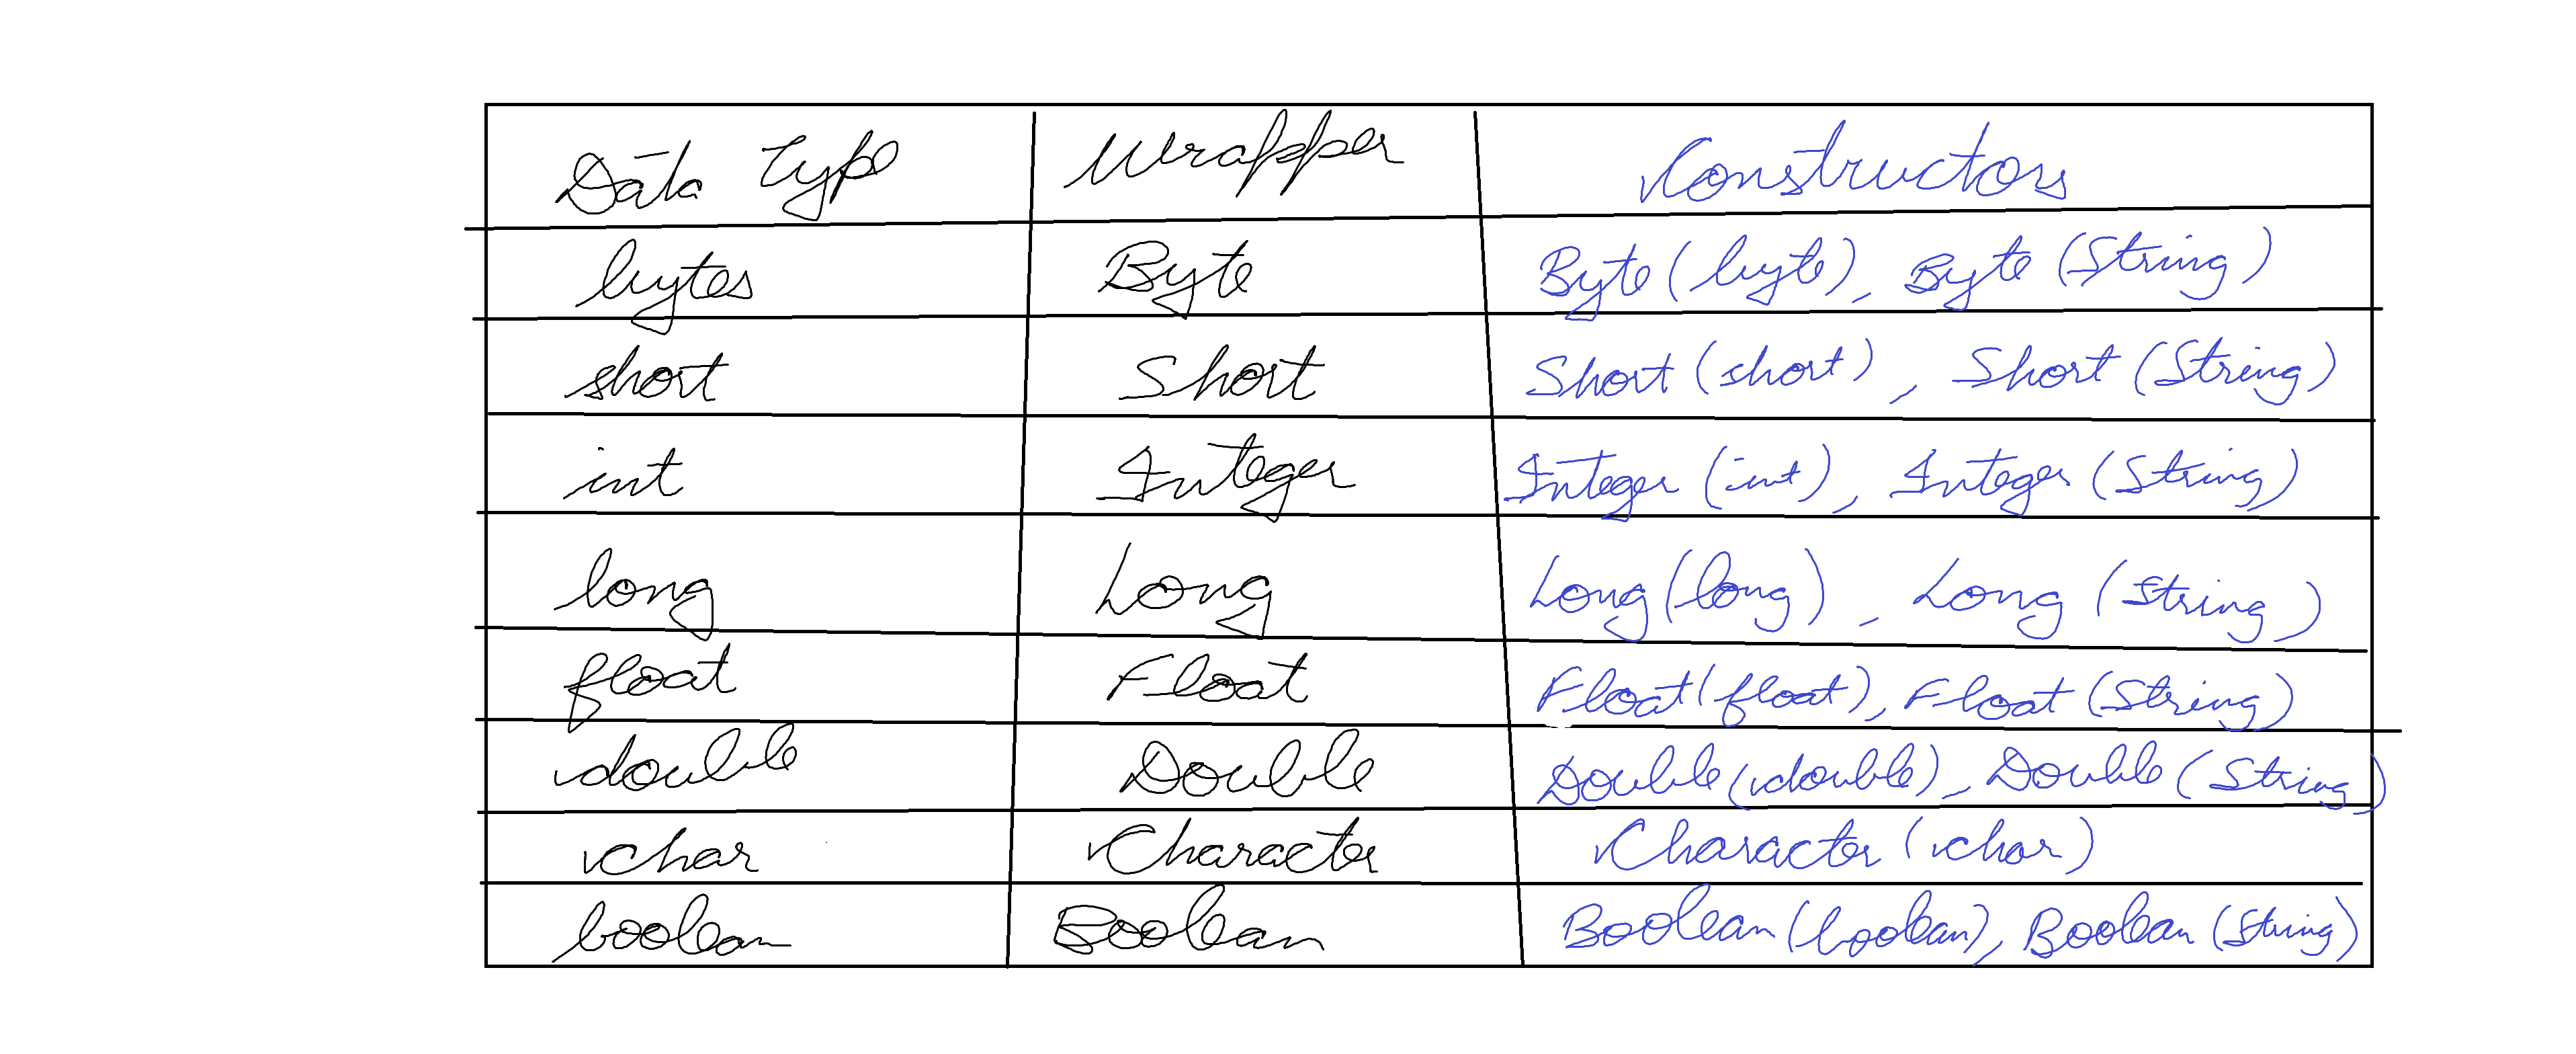 Data Type Wrapper Constructors
bytes Byte Byte (byte), Byte (String)
short Short Short (short), Short (String)
int Integer Integer (int), Integer (String)
long Long Long (long), Long (String)
float Float Float (float), Float (String)
double Double Double (double), Double (String)
char Character Character (char)
boolean Boolean Boolean (boolean), Boolean (String)